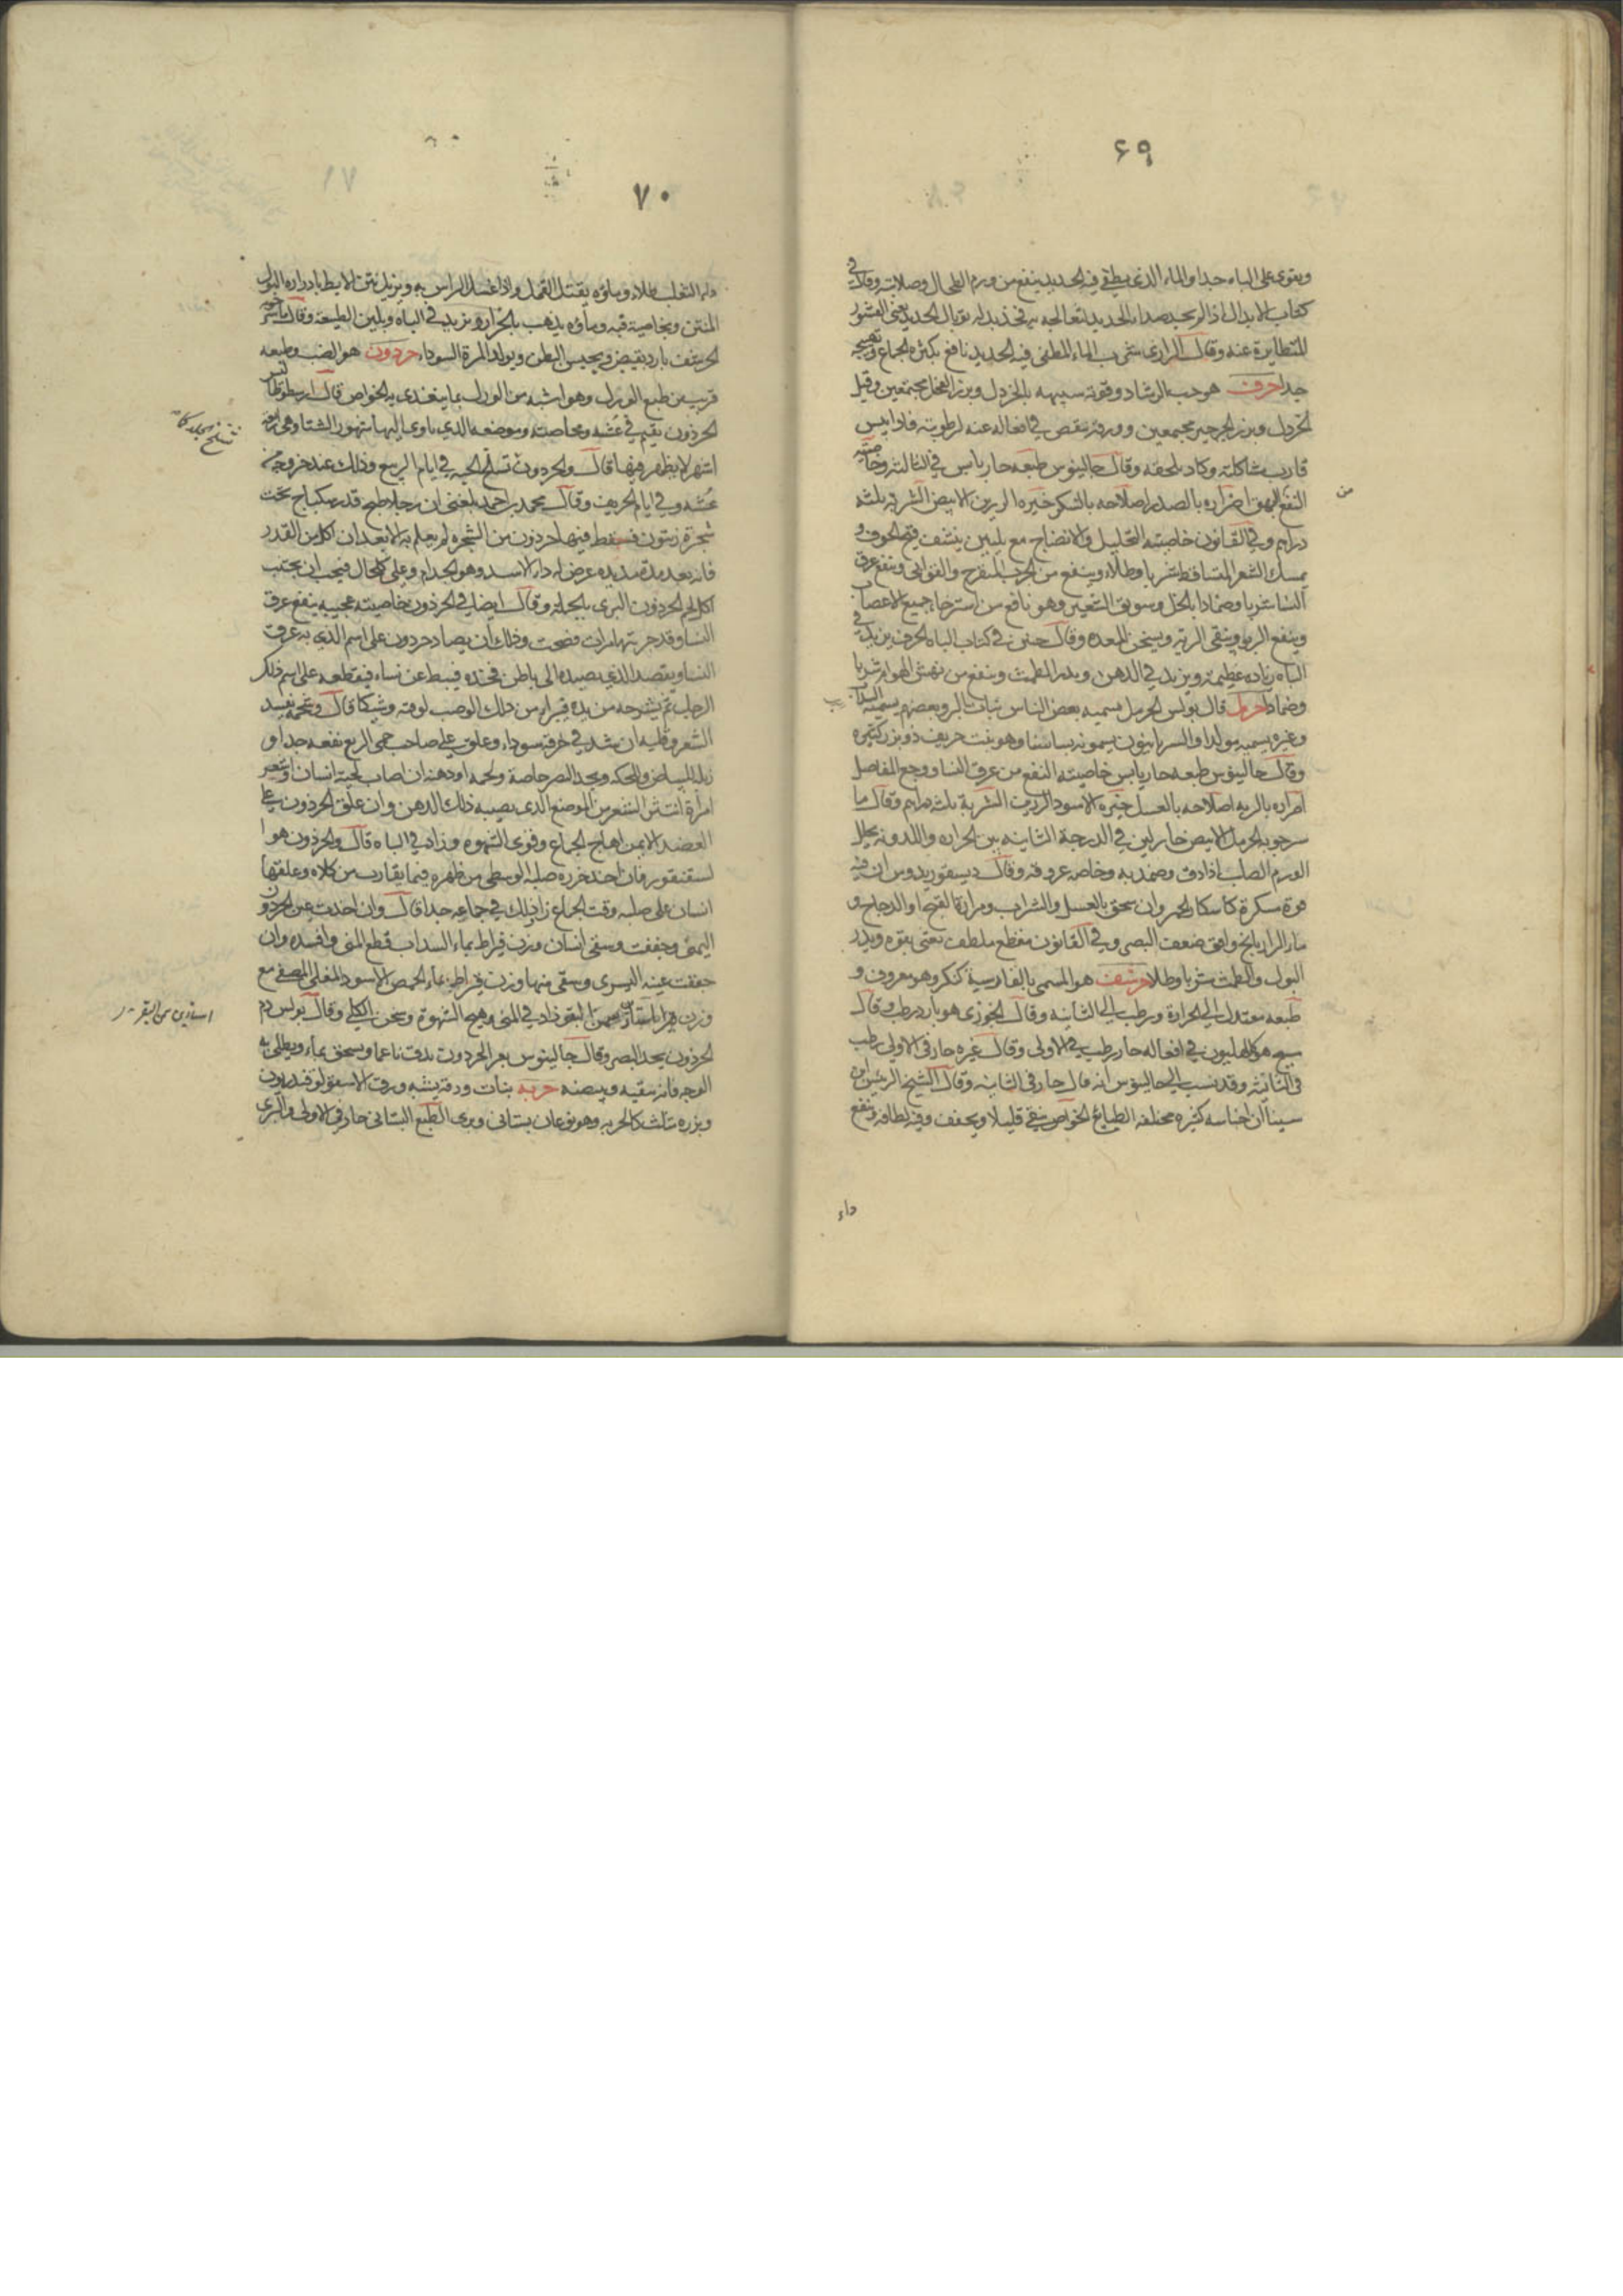 ۶۹
ويقوى على الباه جدا والماء الذى يطفى فيه الحديد ينفع من ورم الطحال وصلابته وقال فى
كتاب الابدال اذا لم يجد صداء الحديد لتعالجه به فخذ بدله توبال الحديد يعنى القشور
المتطايرة عنه وقال الرازى شرب الماء المطفى فيه الحديد نافع بكثرة الجماع
جدا حرف هو حب الرشاد وقوته شبيهه بالخردل وبزر الفجل مجتمعين وقيل
الخردل وبزر الجرجير مجتمعين وورقه ينقص فى افعاله عنه لرطوبته فاذا يبس
قارب مشاكلته وكاد يلحقه وقال جالينوس طبعه حار يابس فى الثالثة وخاصيته
النفع من البهق اضراره بالصدر اصلاحه بالسكر خيره الرزين الابيض الشربة ثلثه
دراهم وفى القانون خاصيته التحليل والانضاج مع تليين ينشف قيح الجوف و
يمسك الشعر المتساقط شربا وطلاء وينفع من الجرب المتقرح والقوابى وينفع عرق
النسا شربا وضمادا بالخل وسويق الشعير وهو نافع من استرخاء جميع الاعصاب
وينفع الربو وينقى الرية ويسخن المعده وقال حنين فى كتاب الباه الحرف يزيد فى
الباه زياده عظيمة ويزيد فى الذهن ويدر الطمث وينفع من نهش الهوام شربا
وضمادا حرمل قال بولس الحرمل يسميه بعض الناس نبات بالبر وبعضهم يسميه السداب
وغيره يسميه مولدا والسريانيون يسمونه بساسا وهو نبت حريف ذو بزر كثيره
وقال جالينوس طبعه حار يابس خاصيته النفع من عرق النسا ووجع المفاصل
اضراره بالريه اصلاحه بالعسل خيره الاسود الرزين الشربة ثلثه دراهم وقال ما
سرجويه الحرمل الابيض حار لين فى الدرجة الثانية بين الحراره واللدونه يحلل
الورم الصلب اذا دق وضمد به وخاصه عروقه وقال ديسقوريدوس ان فيه
قوة مسكرة كاسكار الخمر وان سحق بالعسل والشراب ومرارة القبج او الدجاج و
ماء الرازيانج وافق ضعف البصر وفى القانون مقطع ملطف يغثى بقوه ويدر
البول والطمث شربا وطلا حرشف هو المسمى بالفارسية كنكر وهو معروف و
طبعه معتدل الى الحرارة ورطب الى الثانيه وقال الخوزى هو بارد رطب وقال
مسيح هو كالهليون فى افعاله حار رطب فى الاولى وقال غيره حار فى الاولى رطب
فى الثانيه وقد نسب الى جالينوس انه قال حار فى الثانيه وقال الشيخ الرئيس ابن
سينا ان اجناسه كثيره مختلفه الطبايع الخواص ينقى قليلا ويجفف وفيه لطافه وينفع
من
داء
۷۰
داء الثعلب طلاء وماؤه يقتل القمل واذا غسل الراس به ويزيل نتن الابط بادراره البول
المنتن وبخاصية فيه وماؤه يذهب بالحزاز ويزيد فى الباه ويلين الطبيعة وقال
الحرشف بارد يقبض ويحبس البطن ويولد المرة السوداء حرذون هو الضب وطبعه
قريب من طبع الورل وهو اشبه من الورل بما يغتذى به الخواص قال ارسطوطاليس
الحرذون يقيم فى عشه وموضعه الذى ياوى اليها شهور الشتا وهى اربعة
اشهر لا يظهر فيها قال والحرذون تسلخ الجسد فى ايام الربيع وذلك عند خروجه من
عشه وفى ايام الخريف وقال محمد بن احمد بلغنى ان رجلا طبخ قدر سكباج تحت
شجرة زيتون فسقط فيها حرذون من الشجره لم يعلم به الا بعد ان اكل من القدر
فانه بعد مدة مديده عرض له داء الاسد وهو الجذام وعلى كل حال فيجب ان يجتنب
اكل لحم الحرذون البرى بالجملة وقال ايضا فى الحرذون خاصيته عجيبه ينفع عرق
النسا وقد جربتها مرات فصحت وذلك ان يصاد حرذون على اسم الذى به عرق
النسا ويقصد الذى يصيده الى باطن فخذه فيبط عن نساه فيقطعه على اسم ذلك
الرجل ثم يشرحه من يده فيبراء من ذلك الوصب لوقته وشيكا قال وشحمه يفسد
الشعر وقلبه ان شد فى خرقة سوداء وعلق على صاحب حمى الربع نفعه جدا و
زبله للبياض والحكه ويحد البصر خاصة ولحمه او دهنه ان اصاب لحية انسان او شعر
امراة انتثر الشعر من الموضع الذى يصيبه ذلك الدهن وان علق الحرذون على
العضد الايمن اهاج الجماع وقوى الشهوه وزاد فى الباه قال والحرذون هو ا
لسقنقور فان اخذ خرزه صلبه الوسطى من ظهره فيما يقارب من كلاه وعلقها
انسان على صلبه وقت الجماع زاد ذلك فى جماعه جدا قال وان اخذت عين الحرذون
اليمنى وجففت وسقى انسان وزن قيراط بماء السداب قطع المنى وافسده وان
جففت عينه اليسرى وسقى منها وزن قيراط بماء الحمص الاسود المغلى المصفى مع
وزن استارين سمن البقر زاد فى المنى وهيج الشهوة وسخن الكلى وقال بولس دم
الحرذون يحد البصر وقال جالينوس بعر الحرذون يدق ناعما ويسحق بماء ويطلى به
الوجه فانه ينقيه ويبيضه حربه نبات ورقه يشبه ورق الاسقولوقندريون
وبزره مثلث كالحربه وهو نوعان بستانى وبرى الطبع البستانى حار فى الاولى والبرى
استارين سمن البقر